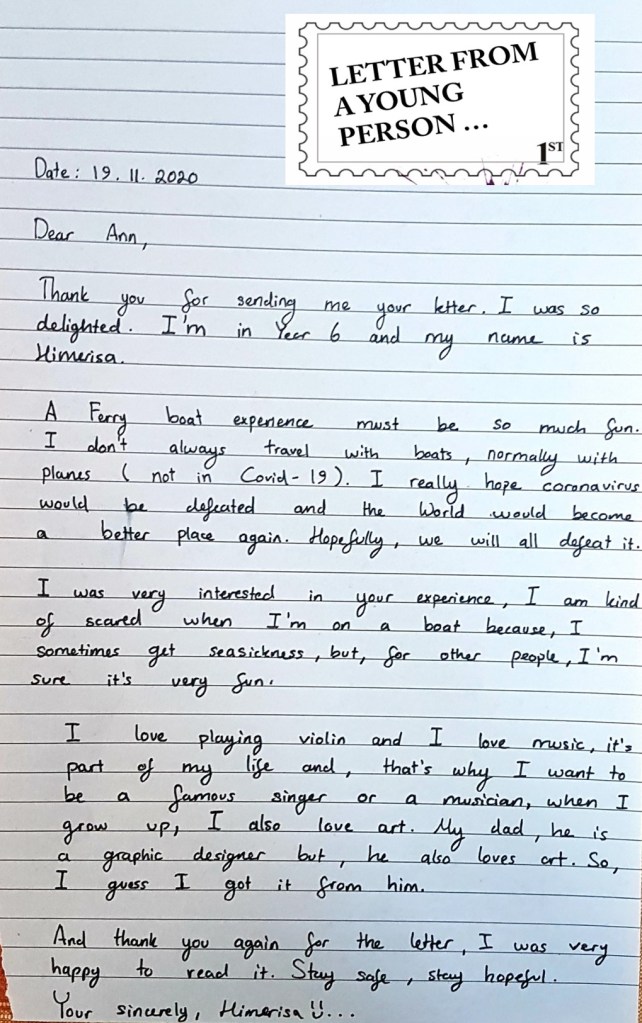 LETTER FROM
A YOUNG
PERSON ...
1ST
Date: 19.11.2020
Dear Ann,
Thank you for sending me your letter. I was so
delighted. I'm in Year 6 and my name is
Himerisa.
A Ferry boat experience must be so much fun.
I don't always travel with boats, normally with
planes ( not in Covid-19). I really hope coronavirus
would be defeated and the World would become
a better place again. Hopefully, we will all defeat it.
I was very interested in your experience, I am kind
of scared when I'm on a boat because, I
sometimes get seasickness, but, for other people, I'm
sure it's very fun.
I love playing violin and I love music, it's
part of my life and, that's why I want to
be a famous singer or a musician, when I
grow up, I also love art. My dad, he is
a graphic designer but, he also loves art. So,
I guess I got it from him.
And thank you again for the letter, I was very
happy to read it. Stay safe, stay hopeful.
Your sincerely, Himerisa ...